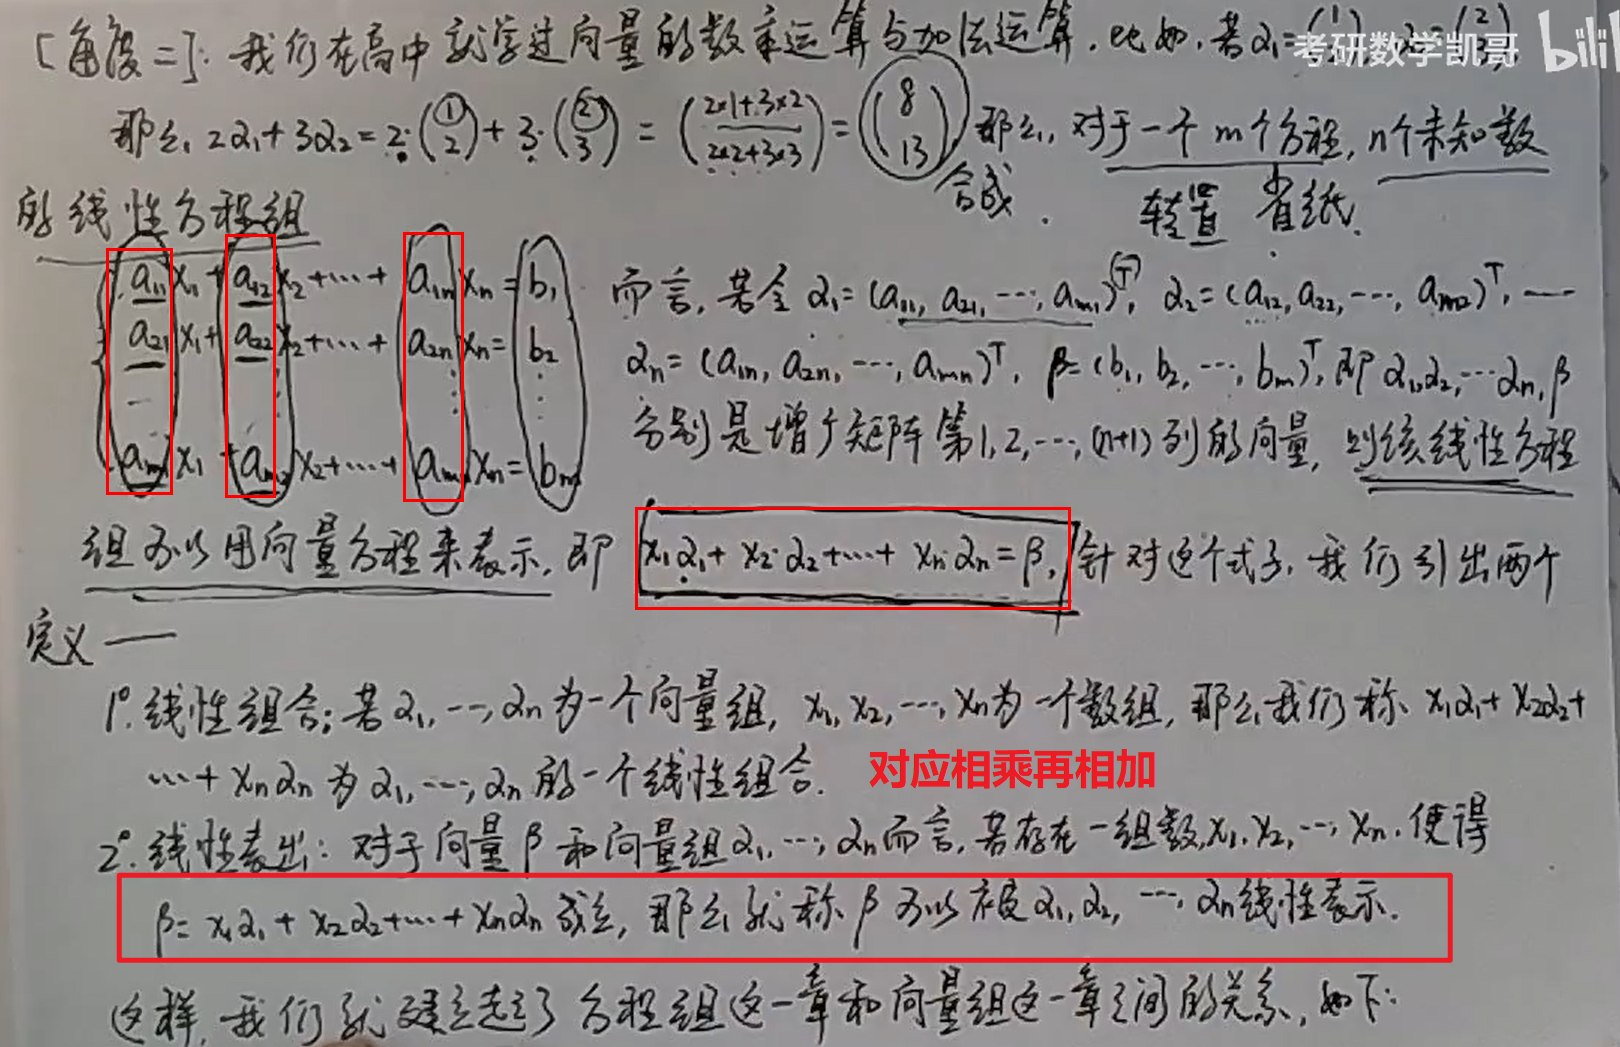 [角度二]: 我们在高中就学过向量的数乘运算与加法运算. 比如, 若α₁=(1
考研数学凯哥 bili
那么, 2α₁+3α₂=2·(1 2)+3·(2 3)=(2×1+3×2 2×2+3×3)=(8 13) 那么, 对于一个m个方程, n个未知数
合成. 转置 省纸.
的线性方程组
a₁₁x₁+a₁₂x₂+⋯+a₁ₙxₙ=b₁ 而言, 若令α₁=(a₁₁, a₂₁, ⋯, aₘ₁)ᵀ, α₂=(a₁₂, a₂₂, ⋯, aₘ₂)ᵀ, ⋯
a₂₁x₁+a₂₂x₂+⋯+a₂ₙxₙ=b₂ αₙ=(a₁ₙ, a₂ₙ, ⋯, aₘₙ)ᵀ, β=(b₁, b₂, ⋯, bₘ)ᵀ, 即α₁,α₂,⋯αₙ,β
分别是增广矩阵第1,2,⋯,(n+1)列的向量, 则该线性方程
aₘ₁x₁+aₘ₂x₂+⋯+aₘₙxₙ=bₘ
组可以用向量方程来表示, 即 x₁α₁+x₂·α₂+⋯+xₙ·αₙ=β, 针对这个式子, 我们引出两个
定义——
1°. 线性组合: 若α₁, ⋯, αₙ为一个向量组, x₁, x₂, ⋯, xₙ为一个数组, 那么我们称 x₁α₁+x₂α₂+
⋯+xₙαₙ为α₁, ⋯, αₙ的一个线性组合. 对应相乘再相加
2°. 线性表出: 对于向量β和向量组α₁, ⋯, αₙ而言, 若存在一组数x₁, x₂, ⋯, xₙ. 使得
β=x₁α₁+x₂α₂+⋯+xₙαₙ成立, 那么就称β可以被α₁,α₂, ⋯, αₙ线性表示.
这样, 我们就建立起了方程组这一章和向量组这一章之间的关系, 如下: